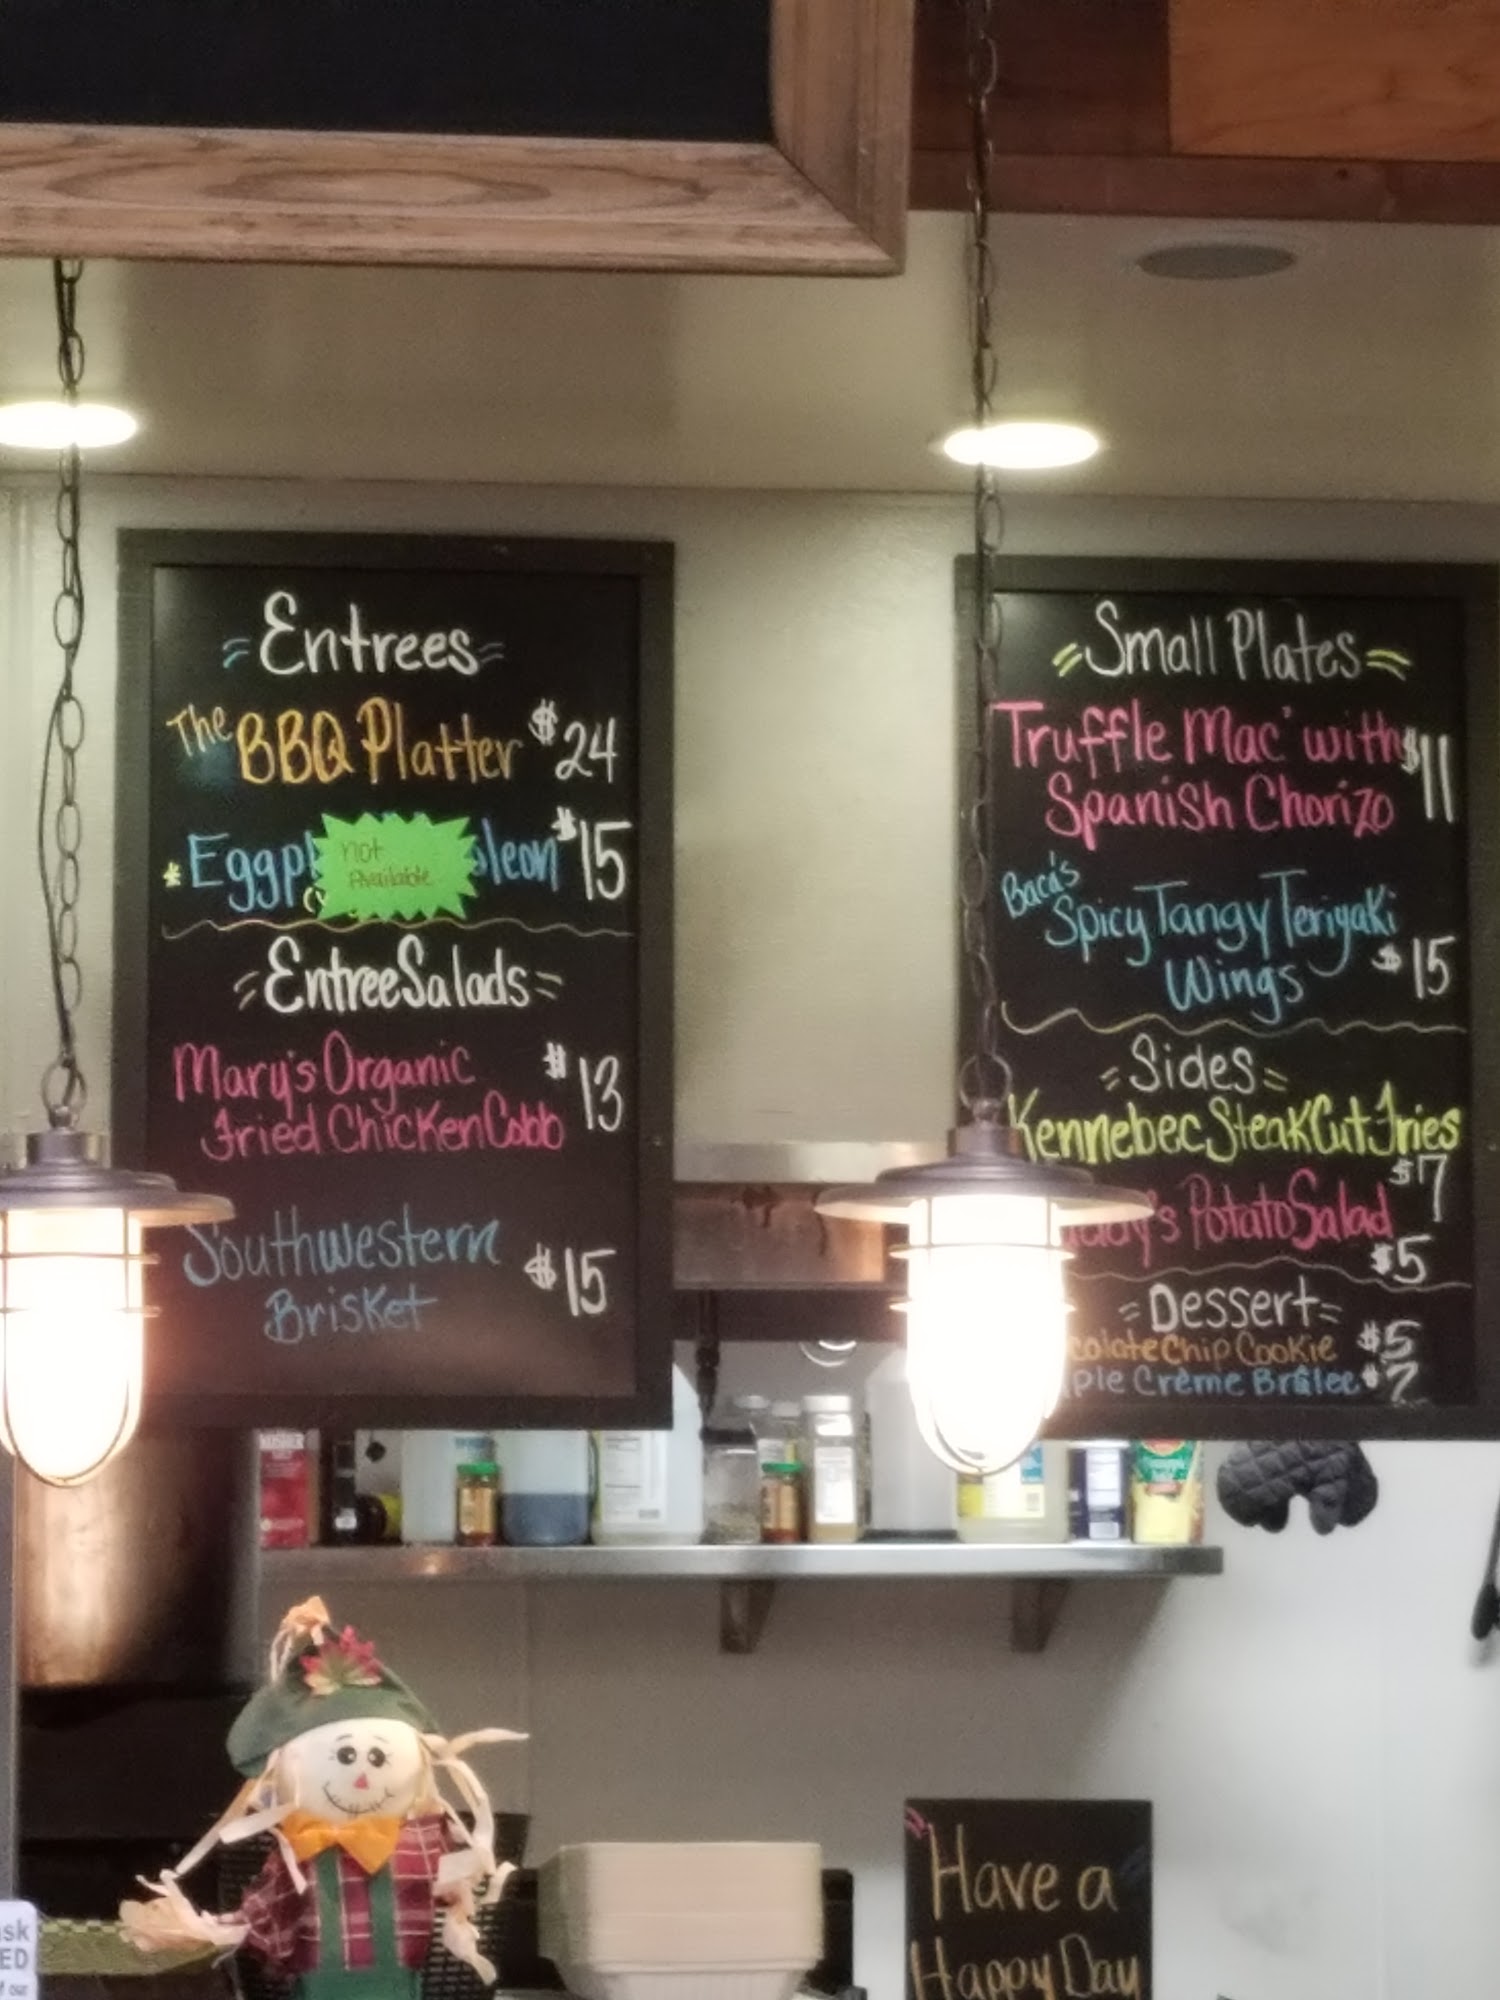 =Entrees=
The BBQ Platter $24
not
Available
$15
=Entree Salads=
Mary's Organic $13
Fried Chicken Cobb
Southwestern $15
Brisket
=Small Plates=
Truffle Mac' with $11
Spanish Chorizo
Baca's
Spicy Tangy Teriyaki
Wings $15
=Sides=
Kennebec Steak Cut Fries
$7
Potato Salad
$5
=Dessert=
Chip Cookie $5
Crème Brûlee $7
Have a
Happy Day